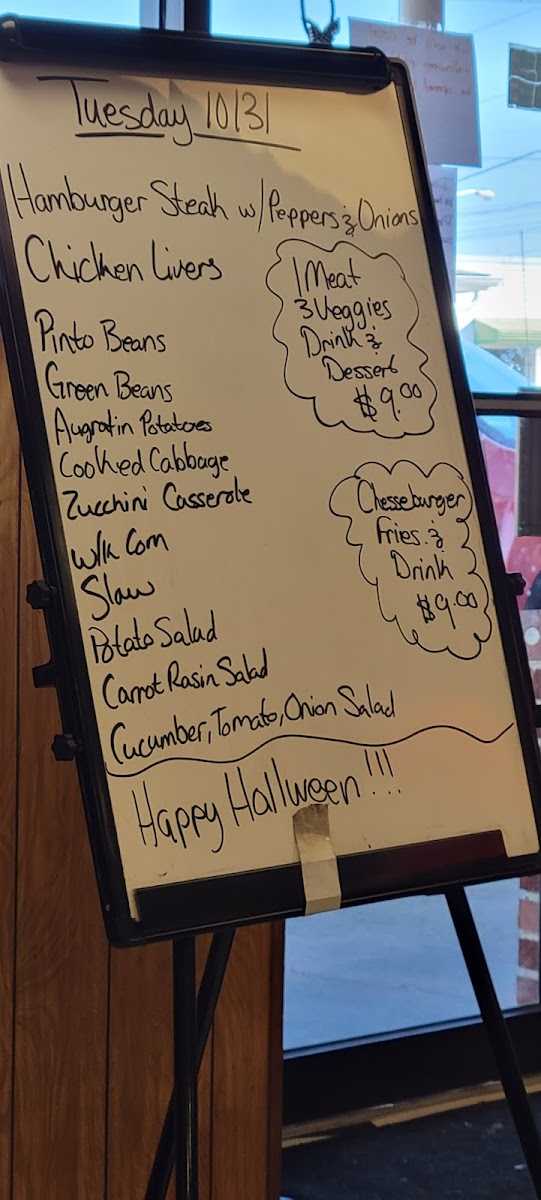 Tuesday 10/31
Hamburger Steak w/Peppers & Onions
Chicken Livers
1 Meat
3 Veggies
Drink &
Dessert
$9.00
Pinto Beans
Green Beans
Augratin Potatoes
Cooked Cabbage
Zucchini Casserole
W/K Corn
Slaw
Potato Salad
Carrot Rasin Salad
Cucumber, Tomato, Onion Salad
Chesseburger
Fries &
Drink
$9.00
Happy Hallween!!!